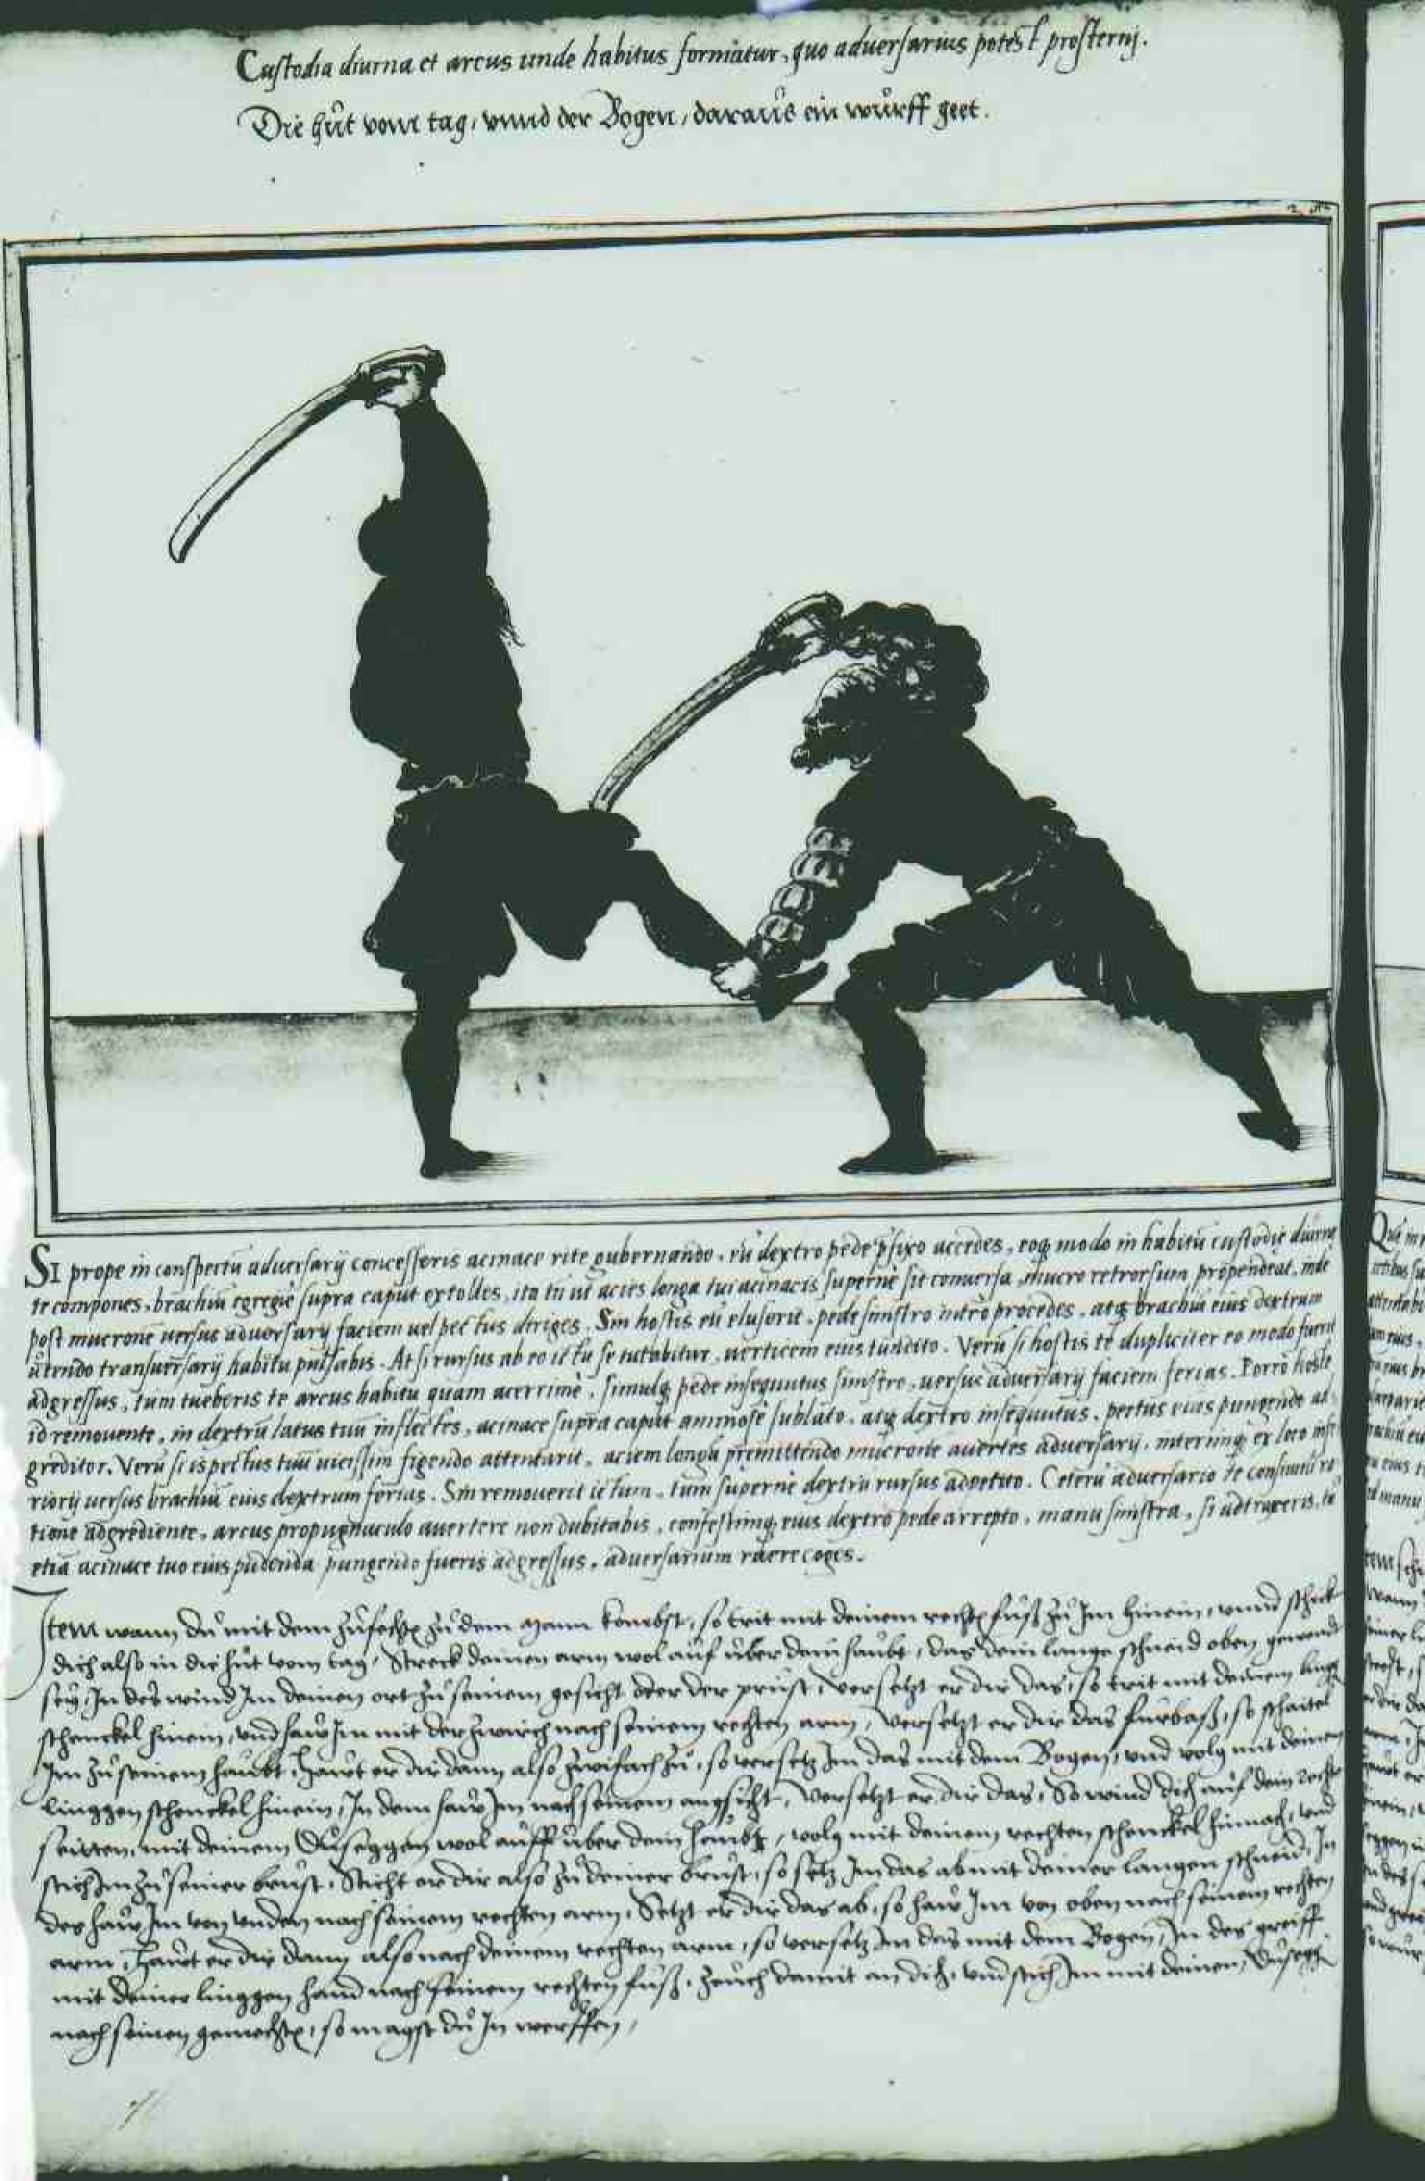 Custodia diurna et arcus unde habitus formatur, quo adversarius potest prosternj.
Die hůt vom tag, unnd der Bogen, daraůs ein wůrff geet.
SI prope in conspectũ adversarij concesseris acinace rite gubernando, tũ dextro pede pfixo accedes, eoq modo in habitũ custodie diurnę
te compones, brachiũ egregiè supra caput extolles, ita tñ ut acies longa tui acinacis supernè sit conversa, mucro retrorsum propendeat, inde
post mucronẽ versus adversarij faciem vel pectus diriges. Sin hostis eũ eluserit, pede sinistro intrò procedes, atq brachiũ eius dextrum
utendo transversarij habitu pulsabis. At si rursus ab eo ictu se tutabitur, verticem eius tundito. Verũ si hostis te dupliciter eo modo fuerit
adgressus, tum tueberis te arcus habitu quam acerrimè, simulq pede insequutus sinistro, versus adversarij faciem ferias. Porrò hoste
id removente, in dextrũ latus tuũ inflectes, acinace supra caput animosè sublato, atq dextro insequutus, pectus eius pungendo ad
greditor. Verũ si is pectus tuũ vicissim figendo attentarit, aciem longã premittendo mucronẽ avertes adversarij, interimq ex loco infe
riorj versus brachiũ eius dextrum ferias. Sin removerit ictum, tum supernè dextrũ rursus adpetito. Ceterũ adversario te consimili ra
tione adgrediente, arcus propugnaculo avertere non dubitabis, confestimq eius dextro pede arrepto, manu sinistra, si adtraxeris, tũ
etiã acinace tuo eius pudenda pungendo fueris adgressus, adversarium ruere coges.
Item wann dů mit dem zůfechtn zů dem Mann kombst, so trit mit deinem rechtn fůß zů Im hinein, unnd schick
dich also in die hůt vom tag, Streck deinen arm wol aůf uber dein haůbt, das dein lange schneid oben gewend
seÿ, In des wind Im deinen ort zů seinem gesicht oder der průst, versetzt er dir das, so trit mit deinem lingn
schenckel hinein, und haw Im mit der zwirch nach seinem rechten arm, versetzt er dir das fůrbaß, so schaitel
Im zů seinem haůbt, Hawt er dir dann also zwifach zů, so versetz Im das mit dem Bogen, und volg mit deinem
linggen schenckel hinein, In dem haw Im nach seinem angsicht, versetzt er dir das, So wind dich aůf dein rechte
seitten, mit deinem Důseggen wol aůff uber dein haubt, volg mit deinem rechten schenckel hinnach, und
stich Im zů seiner brůst, Sticht er dir also zů deiner brůst, so setz Im das ab mit deiner langen schneid, In
des haw Im von unden nach seinem rechten arm, Setzt er dir das ab, so haw Im von oben nach seinem rechten
arm, Hawt er dir dann also nach deinem rechten arm, so versetz Im das mit dem Bogen, In des greiff
mit deiner linggen hand nach seinem rechten fůß, zeůch damit an dich, und stich Im mit deinem Důseggn
nach seinen gemechtn, so magst dů In werffen,